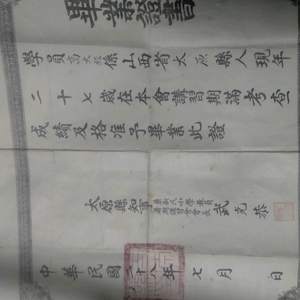 畢業證書
學員高大 係山西省太原縣人現年
二十七歲在本會講習期滿考查
成績及格准予畢業此證
太原縣知事
武克恭
中華民國 十八年七月 日